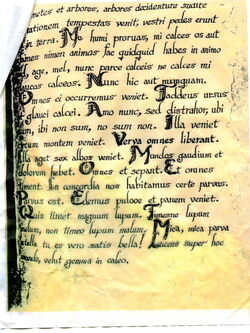 netes et arbores, arbores decidenture sudate
rationem tempestas venit, vestri pedes erunt
in terra. Mo humi proruas, mi calceo os aut
ames nimen animas fac quidquid habes in animo
I, age, mel, nunc parce calceis ne calceo mi
ucas calceas. Nunc hic aut numquam.
Omnes ei occurremus veniet. Taddeus ursus
glauci calcei. Amo nunc, sed distrahor; ubi
um, ibi non sum, no sum non. Illa veniet
rum montem peniet. Verva omnes liberant.
Illa aget sex albos veniet. Mundos gaudium et
dolorem febet. Omnes et separt. E omnes
tinent. In concordia nos habitamus certe parvus.
Parvus est. Edemus pulooz et panem veniet.
Qui timet magnum lupum. Timesne lupum
melum, non timeo lupum malum. Mica, mica parva
stella tu es vero satis bella! Lucens super hoc
mondo, velut gemma in calco.